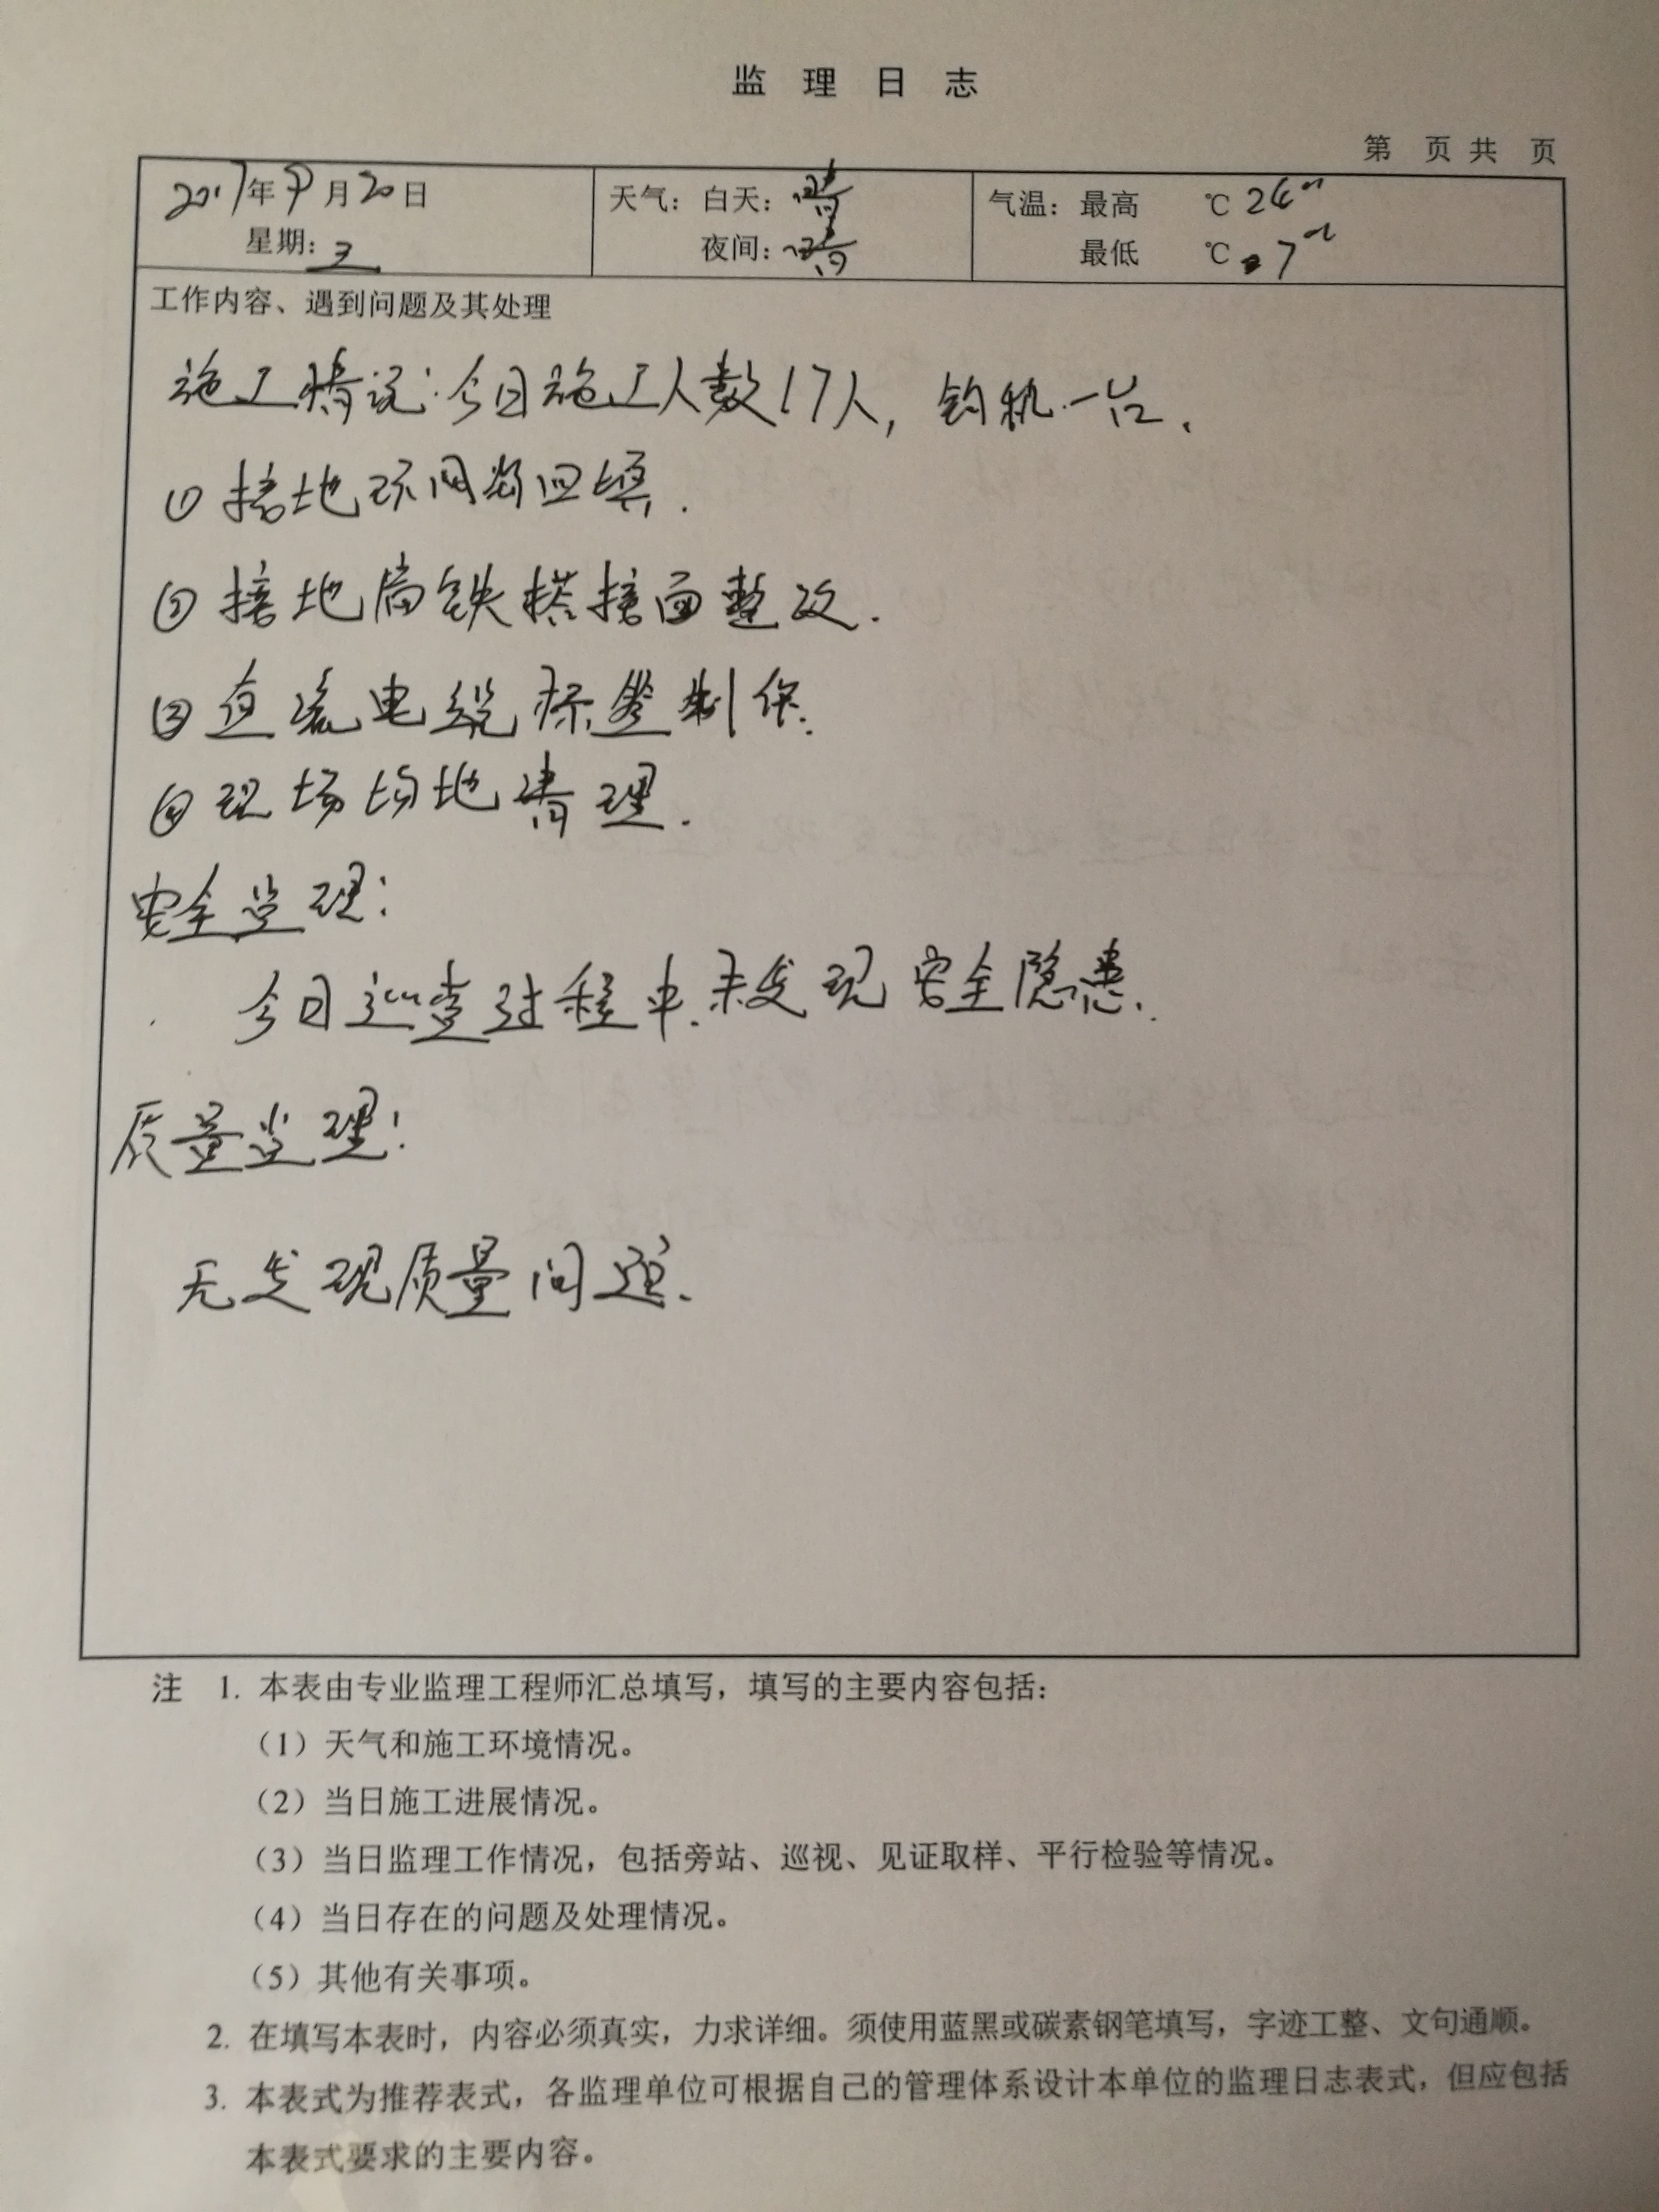 监 理 日 志
第 页 共 页
2017年9月20日 天气：白天：晴 气温：最高 ℃ 26
星期：三 夜间：晴 最低 ℃ 7
工作内容、遇到问题及其处理
施工情况：今日施工人数17人，钩机一台．
① 接地环网沟回填．
② 接地扁铁搭接面整改．
③ 直流电缆标签制作．
④ 现场场地清理．
安全监理：
今日巡查过程中．未发现安全隐患．
质量监理：
无发现质量问题．
注 1. 本表由专业监理工程师汇总填写，填写的主要内容包括：
（1）天气和施工环境情况。
（2）当日施工进展情况。
（3）当日监理工作情况，包括旁站、巡视、见证取样、平行检验等情况。
（4）当日存在的问题及处理情况。
（5）其他有关事项。
2. 在填写本表时，内容必须真实，力求详细。须使用蓝黑或碳素钢笔填写，字迹工整、文句通顺。
3. 本表式为推荐表式，各监理单位可根据自己的管理体系设计本单位的监理日志表式，但应包括
本表式要求的主要内容。